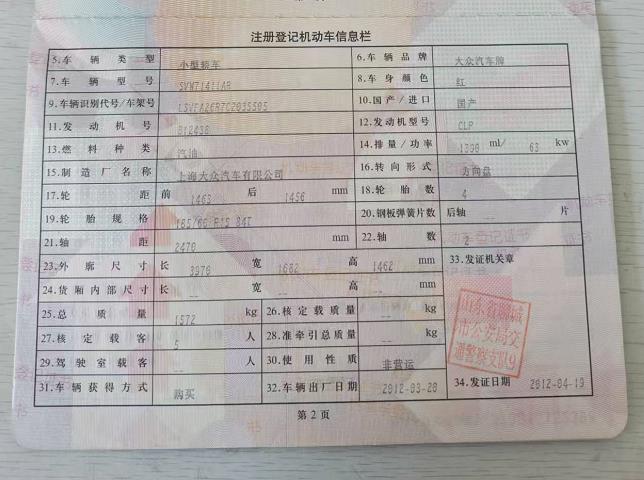 注册登记机动车信息栏
5.车辆类型 小型轿车 6.车辆品牌 大众汽车牌
7.车辆型号 SVW71411AR 8.车身颜色 红
9.车辆识别代号/车架号 LSVFA26R7C2035505 10.国产/进口 国产
11.发动机号 B12438 12.发动机型号 CLP
13.燃料种类 汽油 14.排量/功率 1390 ml/ 63 kw
15.制造厂名称 上海大众汽车有限公司 16.转向形式 方向盘
17.轮距 前 1463 后 1456 mm 18.轮胎数 4
19.轮胎规格 185/60 R15 84T 20.钢板弹簧片数 后轴 -- 片
21.轴距 2470 mm 22.轴数 2
23.外廓尺寸 长 3970 宽 1682 高 1462 mm 33.发证机关章
24.货厢内部尺寸 长 -- 宽 -- 高 -- mm
25.总质量 1572 kg 26.核定载质量 -- kg
27.核定载客 5 人 28.准牵引总质量 -- kg
29.驾驶室载客 -- 人 30.使用性质 非营运
31.车辆获得方式 购买 32.车辆出厂日期 2012-03-28 34.发证日期 2012-04-19
山东省聊城
市公安局交
通警察支队9
第2页